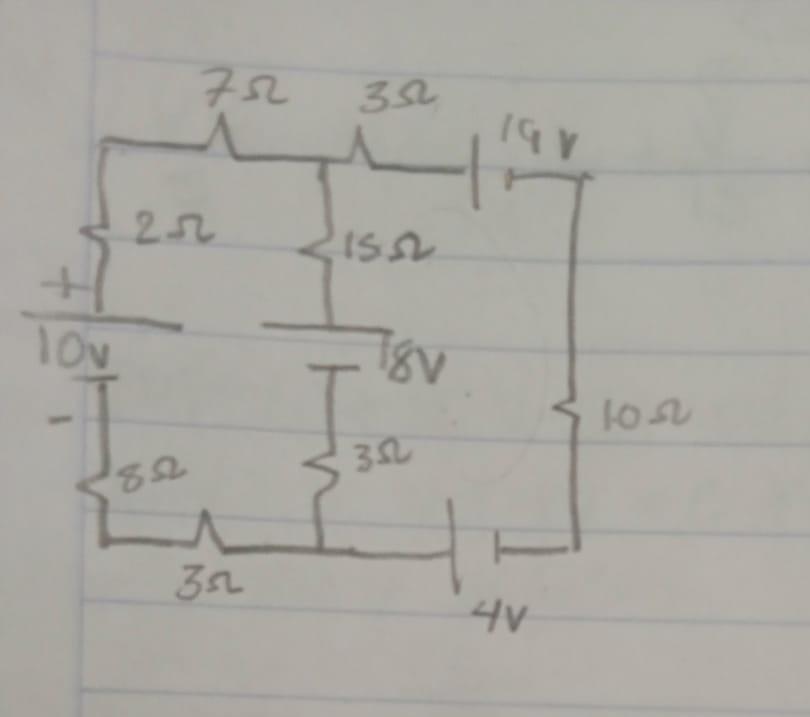 7Ω 3Ω 19 V
2Ω 15Ω
+
10v 18V
-
10Ω
8Ω 3Ω
3Ω 4V